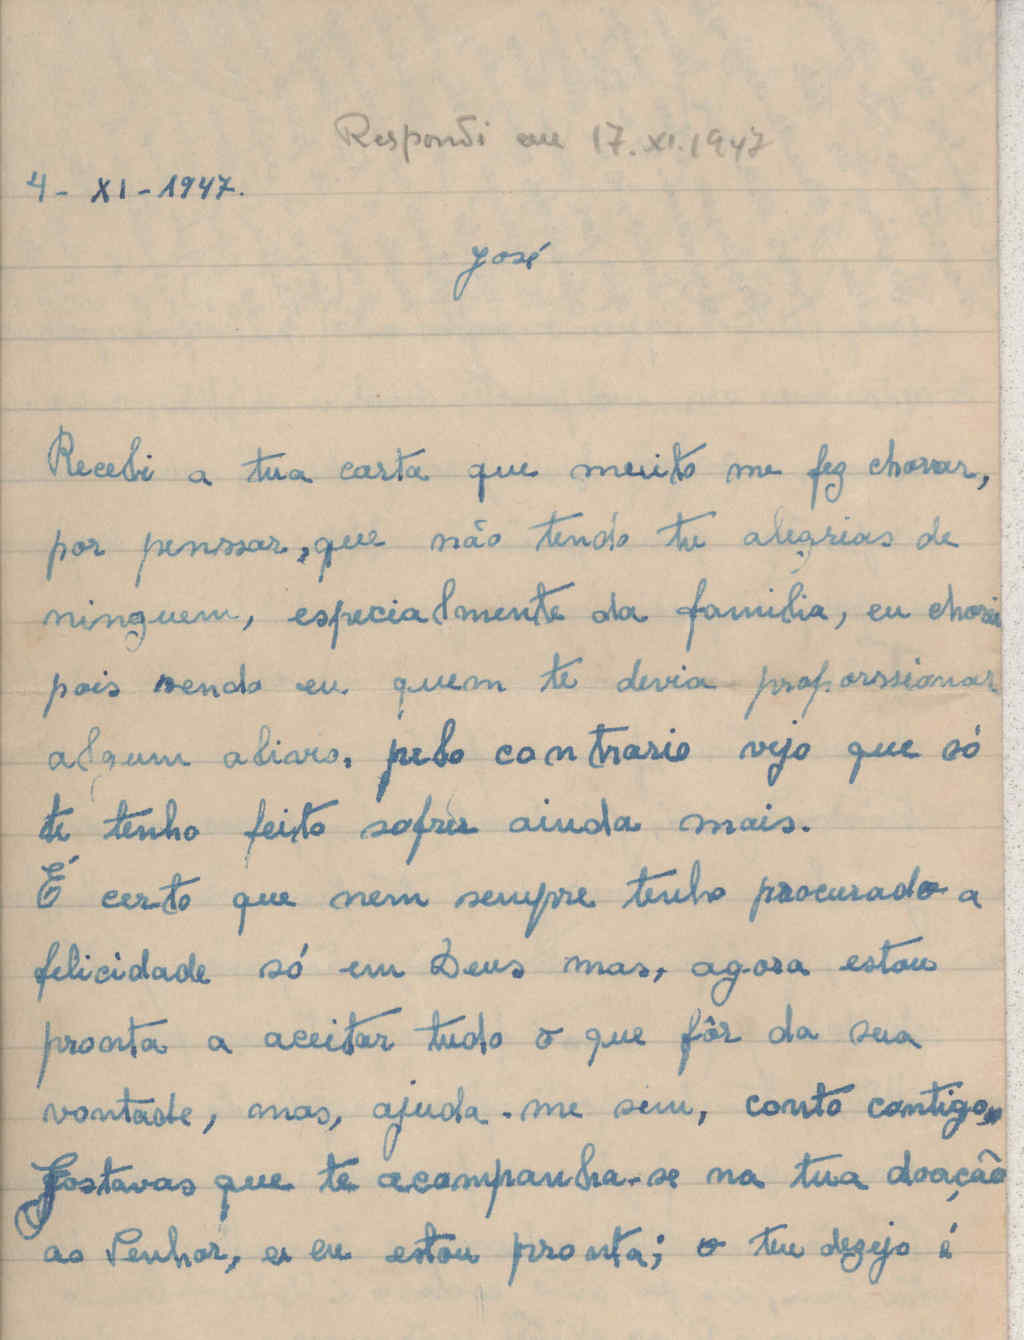 Respondi em 17.XI.1947
4 - XI - 1947.
José
Recebi a tua carta que muito me fez chorar,
por penssar, que não tendo tu alegrias de
ninguem, especialmente da familia, eu chorei
pois sendo eu quem te devia proporssionar
algum alivio, pelo contrario vejo que só
te tenho feito sofrer ainda mais.
É certo que nem sempre tenho procurado a
felicidade só em Deus mas, agora estou
pronta a aceitar tudo o que fôr da sua
vontade, mas, ajuda-me sim, conto contigo,
Gostavas que te acompanha-se na tua doação
ao Senhor, e eu estou pronta; o teu dezejo é